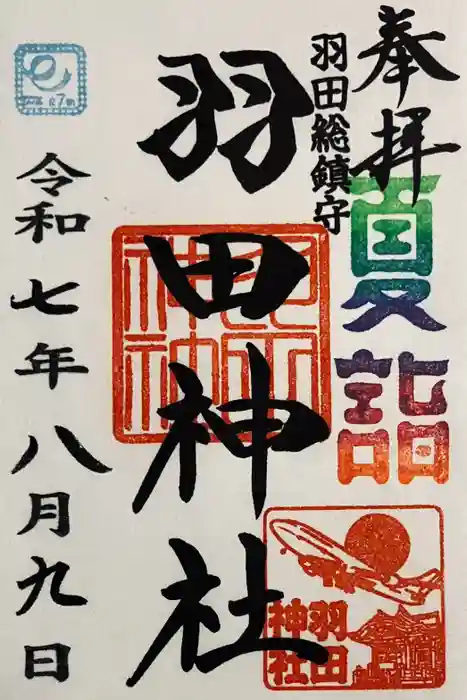 奉拝
夏詣
羽田総鎮守
羽田神社
羽田
神社
令和七年八月九日